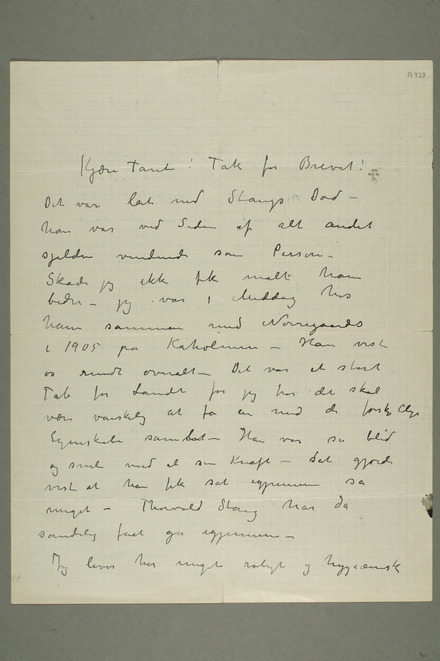 N 929
Kjære Tante! Tak for Brevet!
Det var leit med Stangs Død –
han var ved Siden af alt andet
sjelden vindende som Person –
Skade jeg ikke fik malt ham
bedre – jeg var i Middag hos
ham sammen med Nørregaards
i 1905 på Kaholmen – Han viste
os rundt overalt – Det var et stort
Tab for Landet for jeg tror det skal
være vanskelig at få en med de forskjellige
Egenskaber samlet – Han var så blid
og smil med al sin Kraft – Det gjorde
vist at han fik sat igjennem så
meget – Thorvald Stang har da
sandelig faat gå igjennem –
Jeg lever her meget roligt og hygiænisk